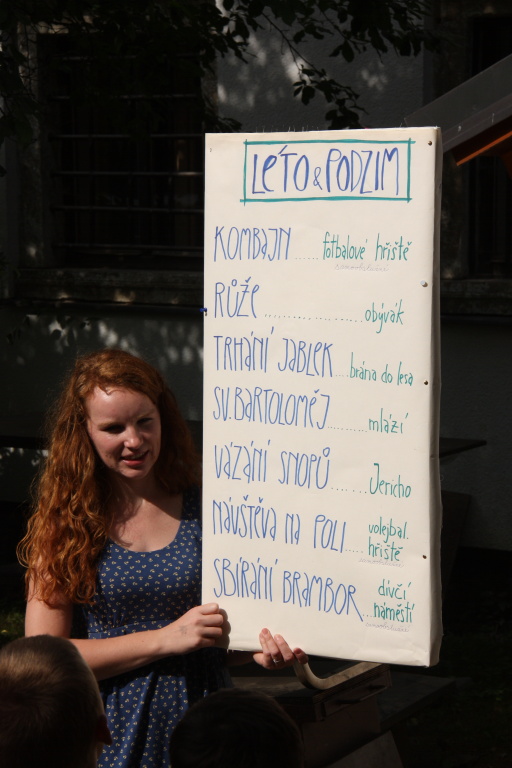 LéTO & PODZIM
KOMBAJN ...... fotbalové hřiště
RŮŽE .................. obývák
TRHÁNÍ JABLEK .... brána do lesa
SV. BARTOLOMĚJ ......... mlází
VÁZÁNÍ SNOPŮ ....... Jericho
NÁVŠTĚVA NA POLI .... volejbal. hřiště
SBÍRÁNÍ BRAMBOR .. dívčí náměstí